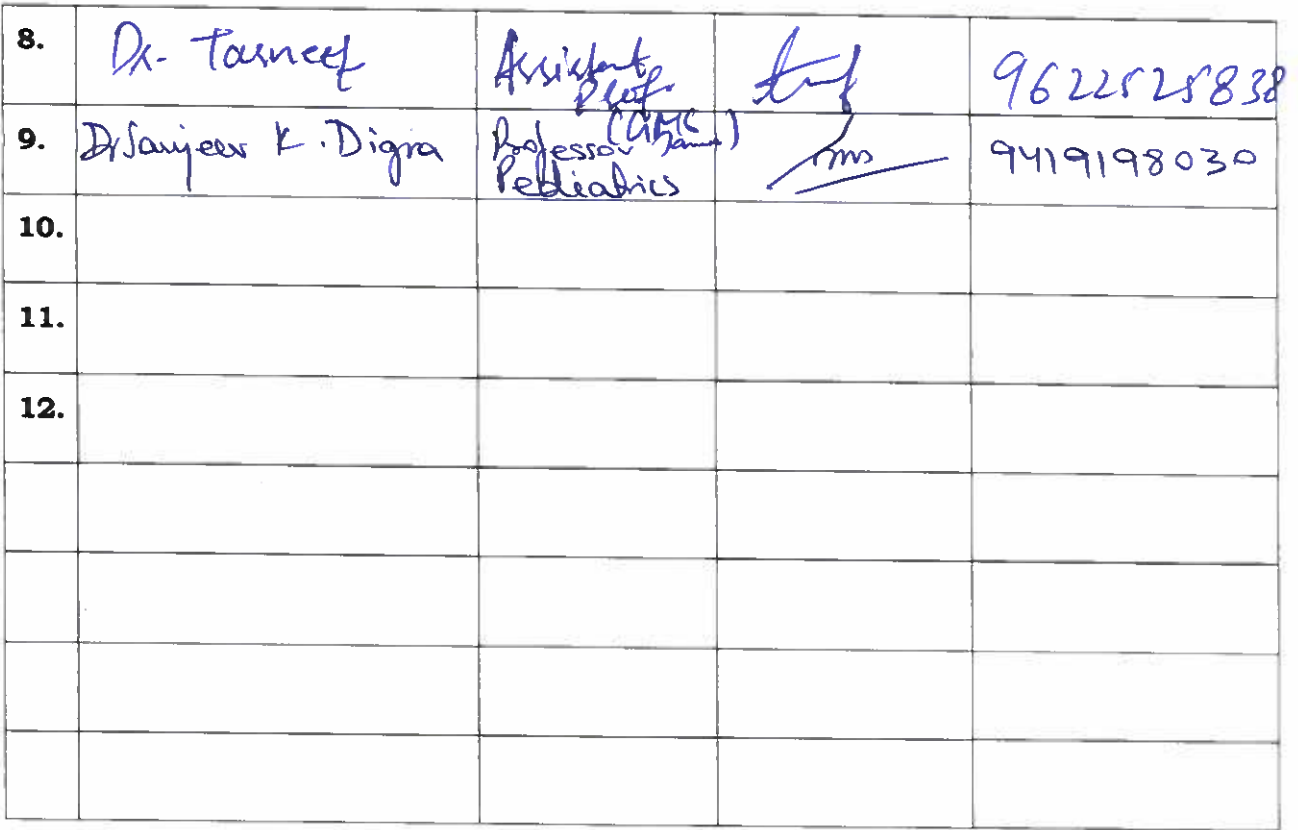 8. Dr. Tasneef Assistant Prof. 9622525838
(GMC Jammu)
9. Dr Sanjeev K. Digra Professor Pediatrics 9419198030
10.
11.
12.